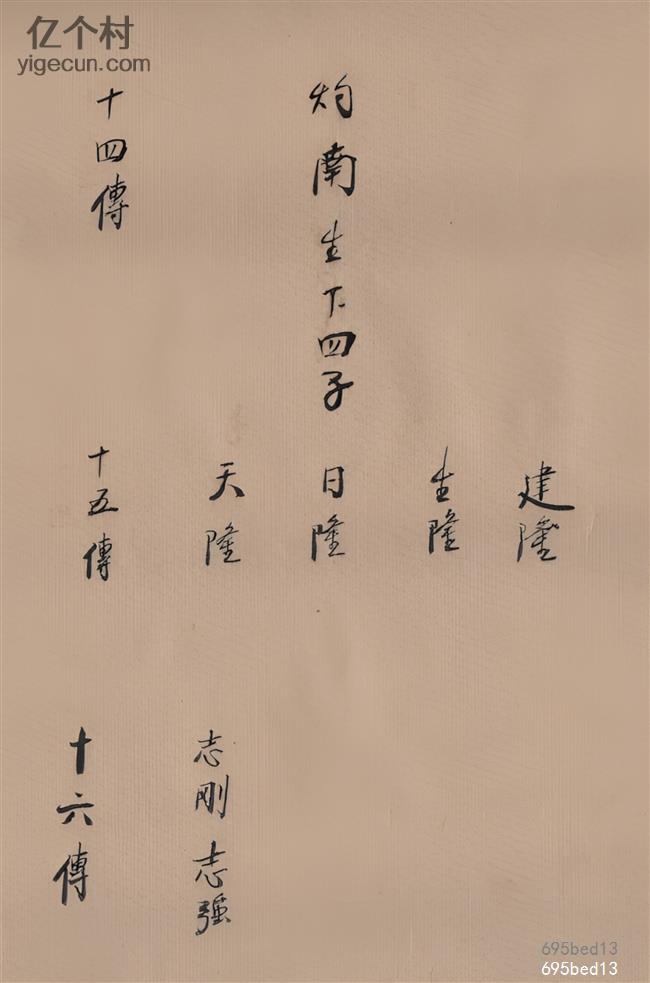 亿个村
yigecun.com
灼南生下四子
十四傳
建隆
生隆
日隆
天隆
十五傳
志刚志强
十六傳
695bed13
695bed13